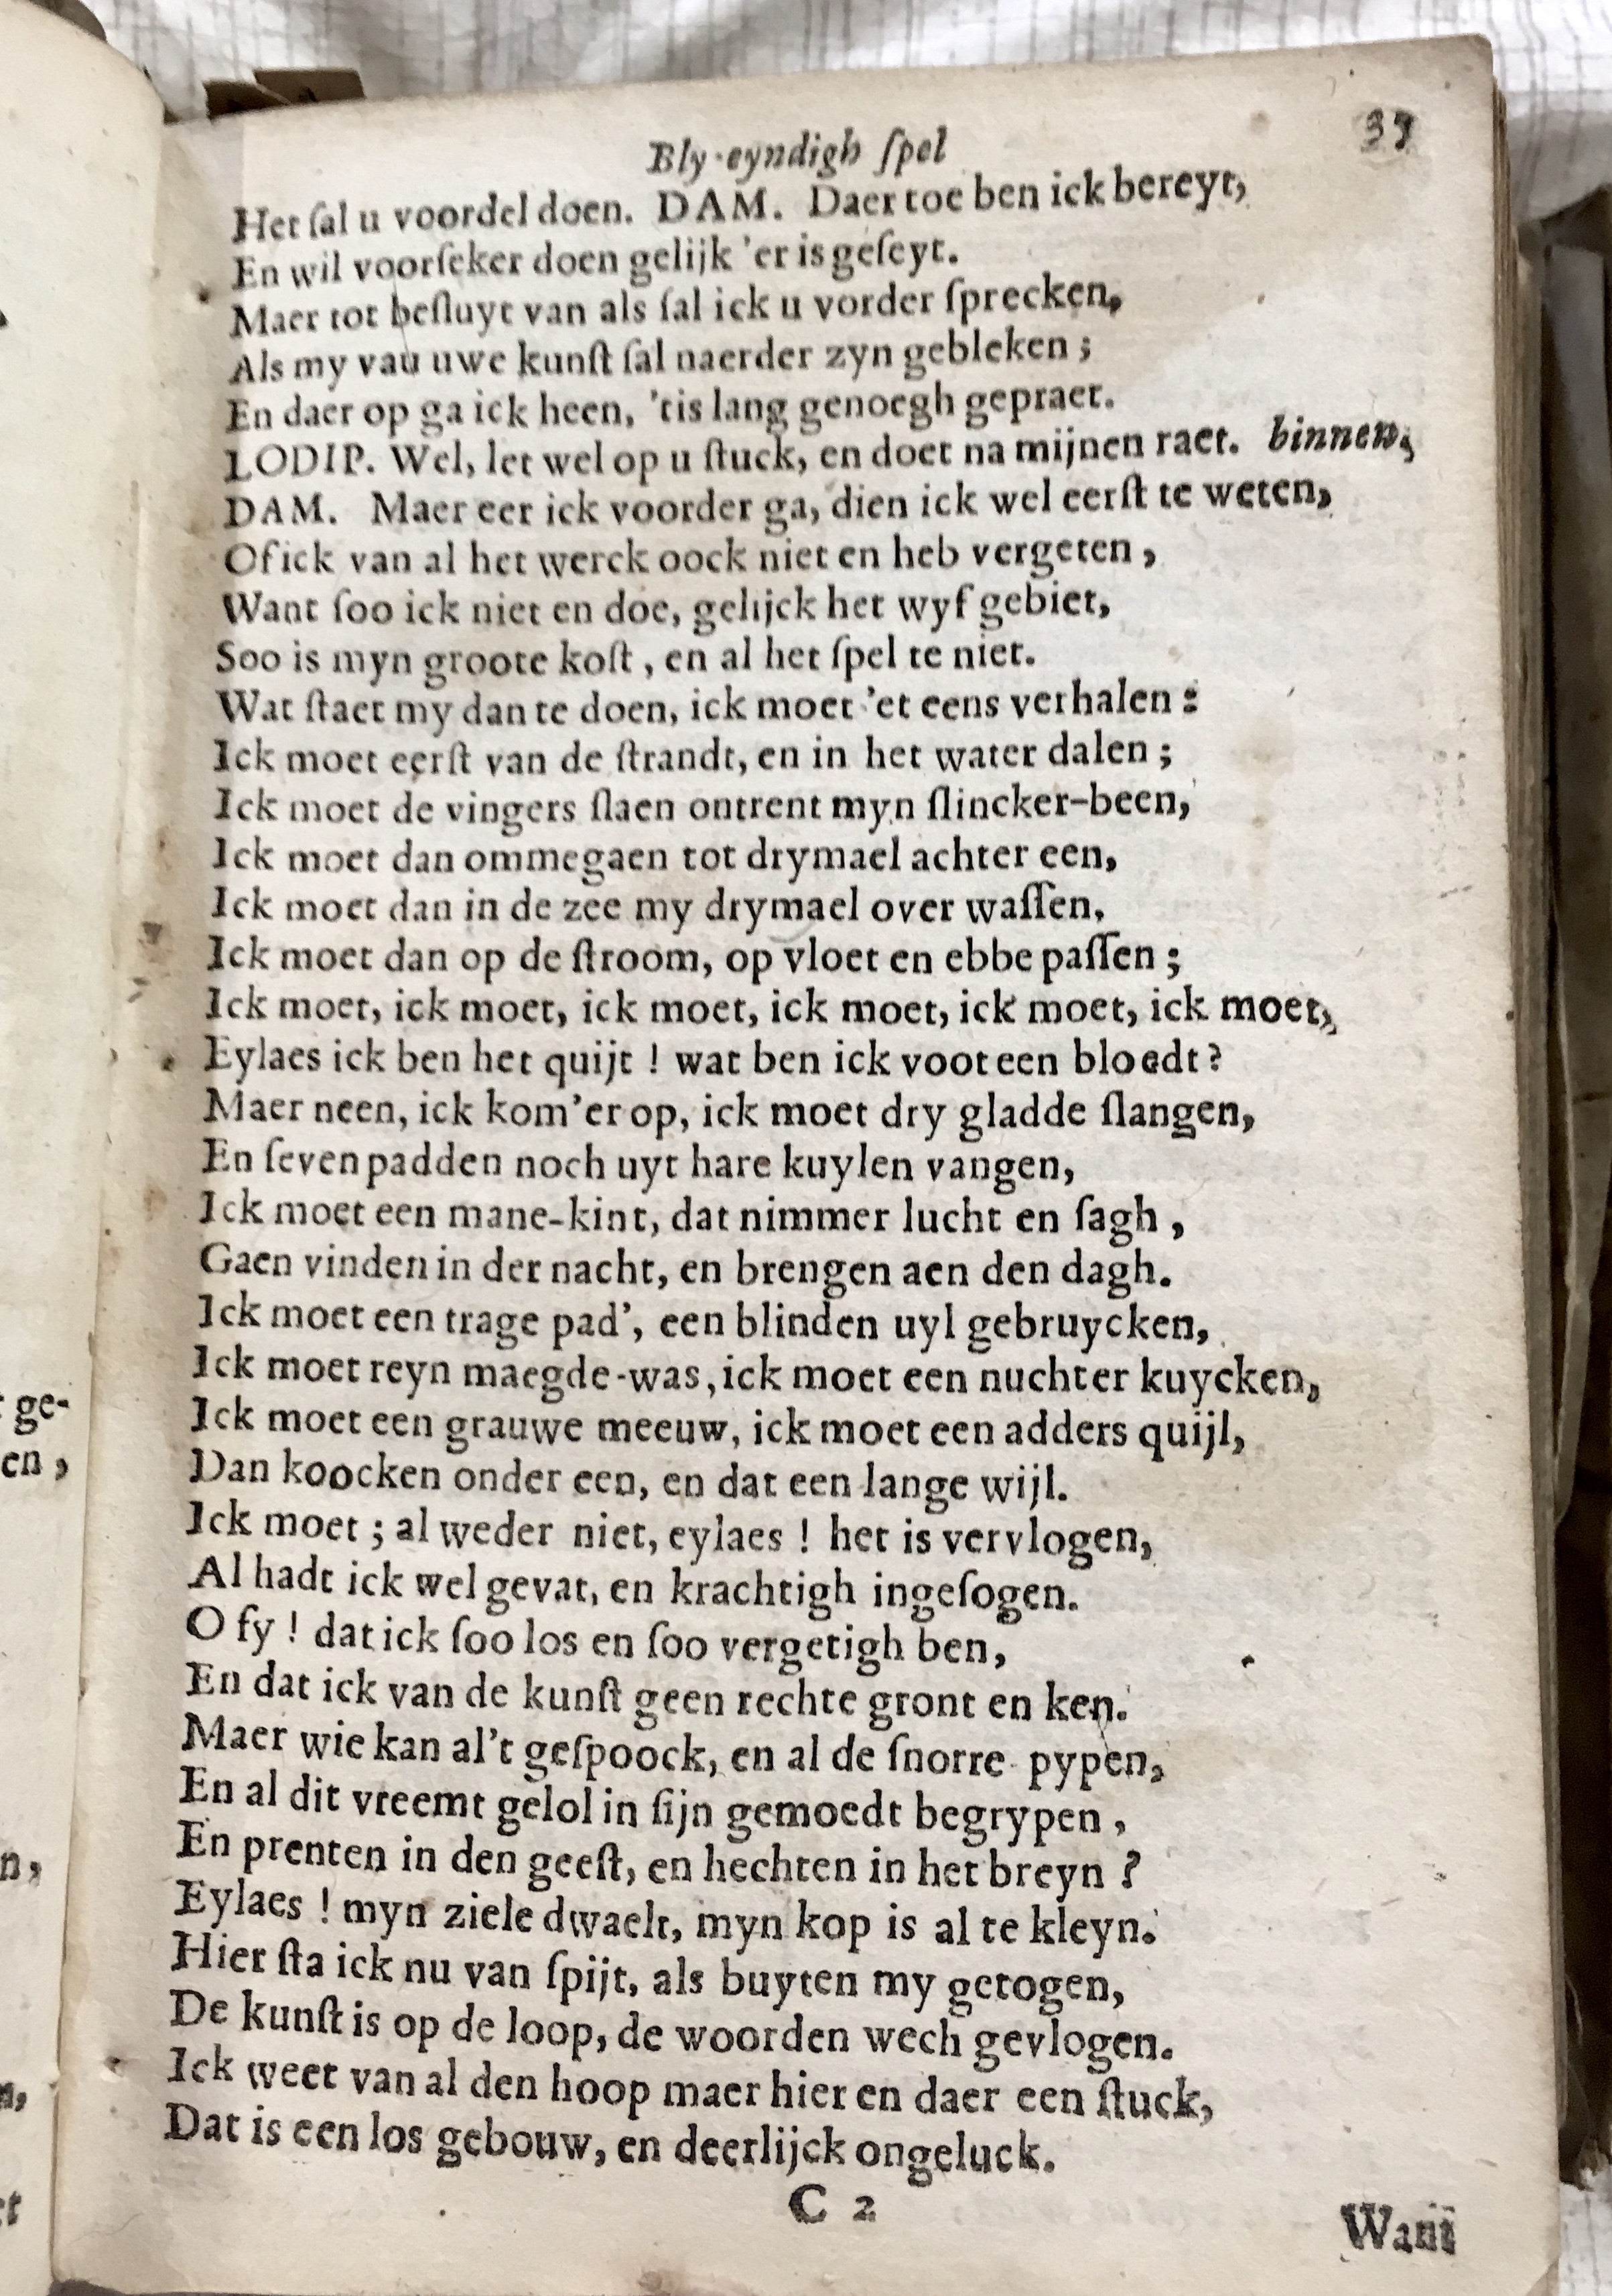 Bly-eyndigh ſpel
Het ſal u voordel doen. DAM. Daer toe ben ick bereyt,
En wil voorſeker doen gelijk 'er is geſeyt.
Maer tot beſluyt van als ſal ick u vorder ſprecken,
Als my vau uwe kunſt ſal naerder zyn gebleken;
En daer op ga ick heen, 'tis lang genoegh gepraet.
LODIP. Wel, let wel op u ſtuck, en doet na mijnen raet. binnen,
DAM. Maer eer ick voorder ga, dien ick wel eerſt te weten,
Of ick van al het werck oock niet en heb vergeten,
Want ſoo ick niet en doe, gelijck het wyf gebiet,
Soo is myn groote koſt, en al het ſpel te niet.
Wat ſtaet my dan te doen, ick moet 'et eens verhalen:
Ick moet eerſt van de ſtrandt, en in het water dalen;
Ick moet de vingers ſlaen ontrent myn ſlincker-been,
Ick moet dan ommegaen tot drymael achter een,
Ick moet dan in de zee my drymael over waſſen,
Ick moet dan op de ſtroom, op vloet en ebbe paſſen;
Ick moet, ick moet, ick moet, ick moet, ick moet, ick moet,
Eylaes ick ben het quijt! wat ben ick voot een bloedt?
Maer neen, ick kom'er op, ick moet dry gladde ſlangen,
En ſeven padden noch uyt hare kuylen vangen,
Ick moet een mane-kint, dat nimmer lucht en ſagh,
Gaen vinden in der nacht, en brengen aen den dagh.
Ick moet een trage pad', een blinden uyl gebruycken,
Ick moet reyn maegde-was, ick moet een nuchter kuycken,
Ick moet een grauwe meeuw, ick moet een adders quijl,
Dan koocken onder een, en dat een lange wijl.
Ick moet; al weder niet, eylaes! het is vervlogen,
Al hadt ick wel gevat, en krachtigh ingeſogen.
O fy! dat ick ſoo los en ſoo vergetigh ben,
En dat ick van de kunſt geen rechte gront en ken.
Maer wie kan al't geſpoock, en al de ſnorre-pypen,
En al dit vreemt gelol in ſijn gemoedt begrypen,
En prenten in den geeſt, en hechten in het breyn?
Eylaes! myn ziele dwaelt, myn kop is al te kleyn.
Hier ſta ick nu van ſpijt, als buyten my getogen,
De kunſt is op de loop, de woorden wech gevlogen.
Ick weet van al den hoop maer hier en daer een ſtuck,
Dat is een los gebouw, en deerlijck ongeluck.
C 2
Want